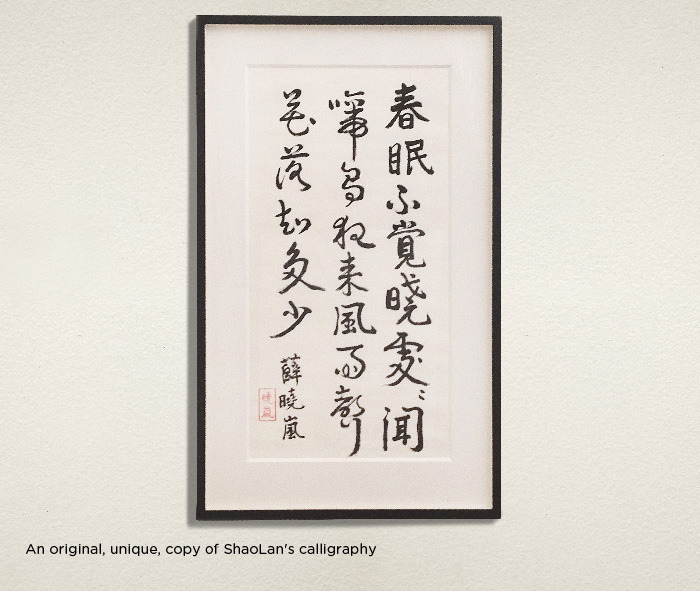 春眠不覺曉處〻聞
啼鳥夜来風雨聲
花落知多少
薛曉嵐
曉嵐
An original, unique, copy of ShaoLan's calligraphy